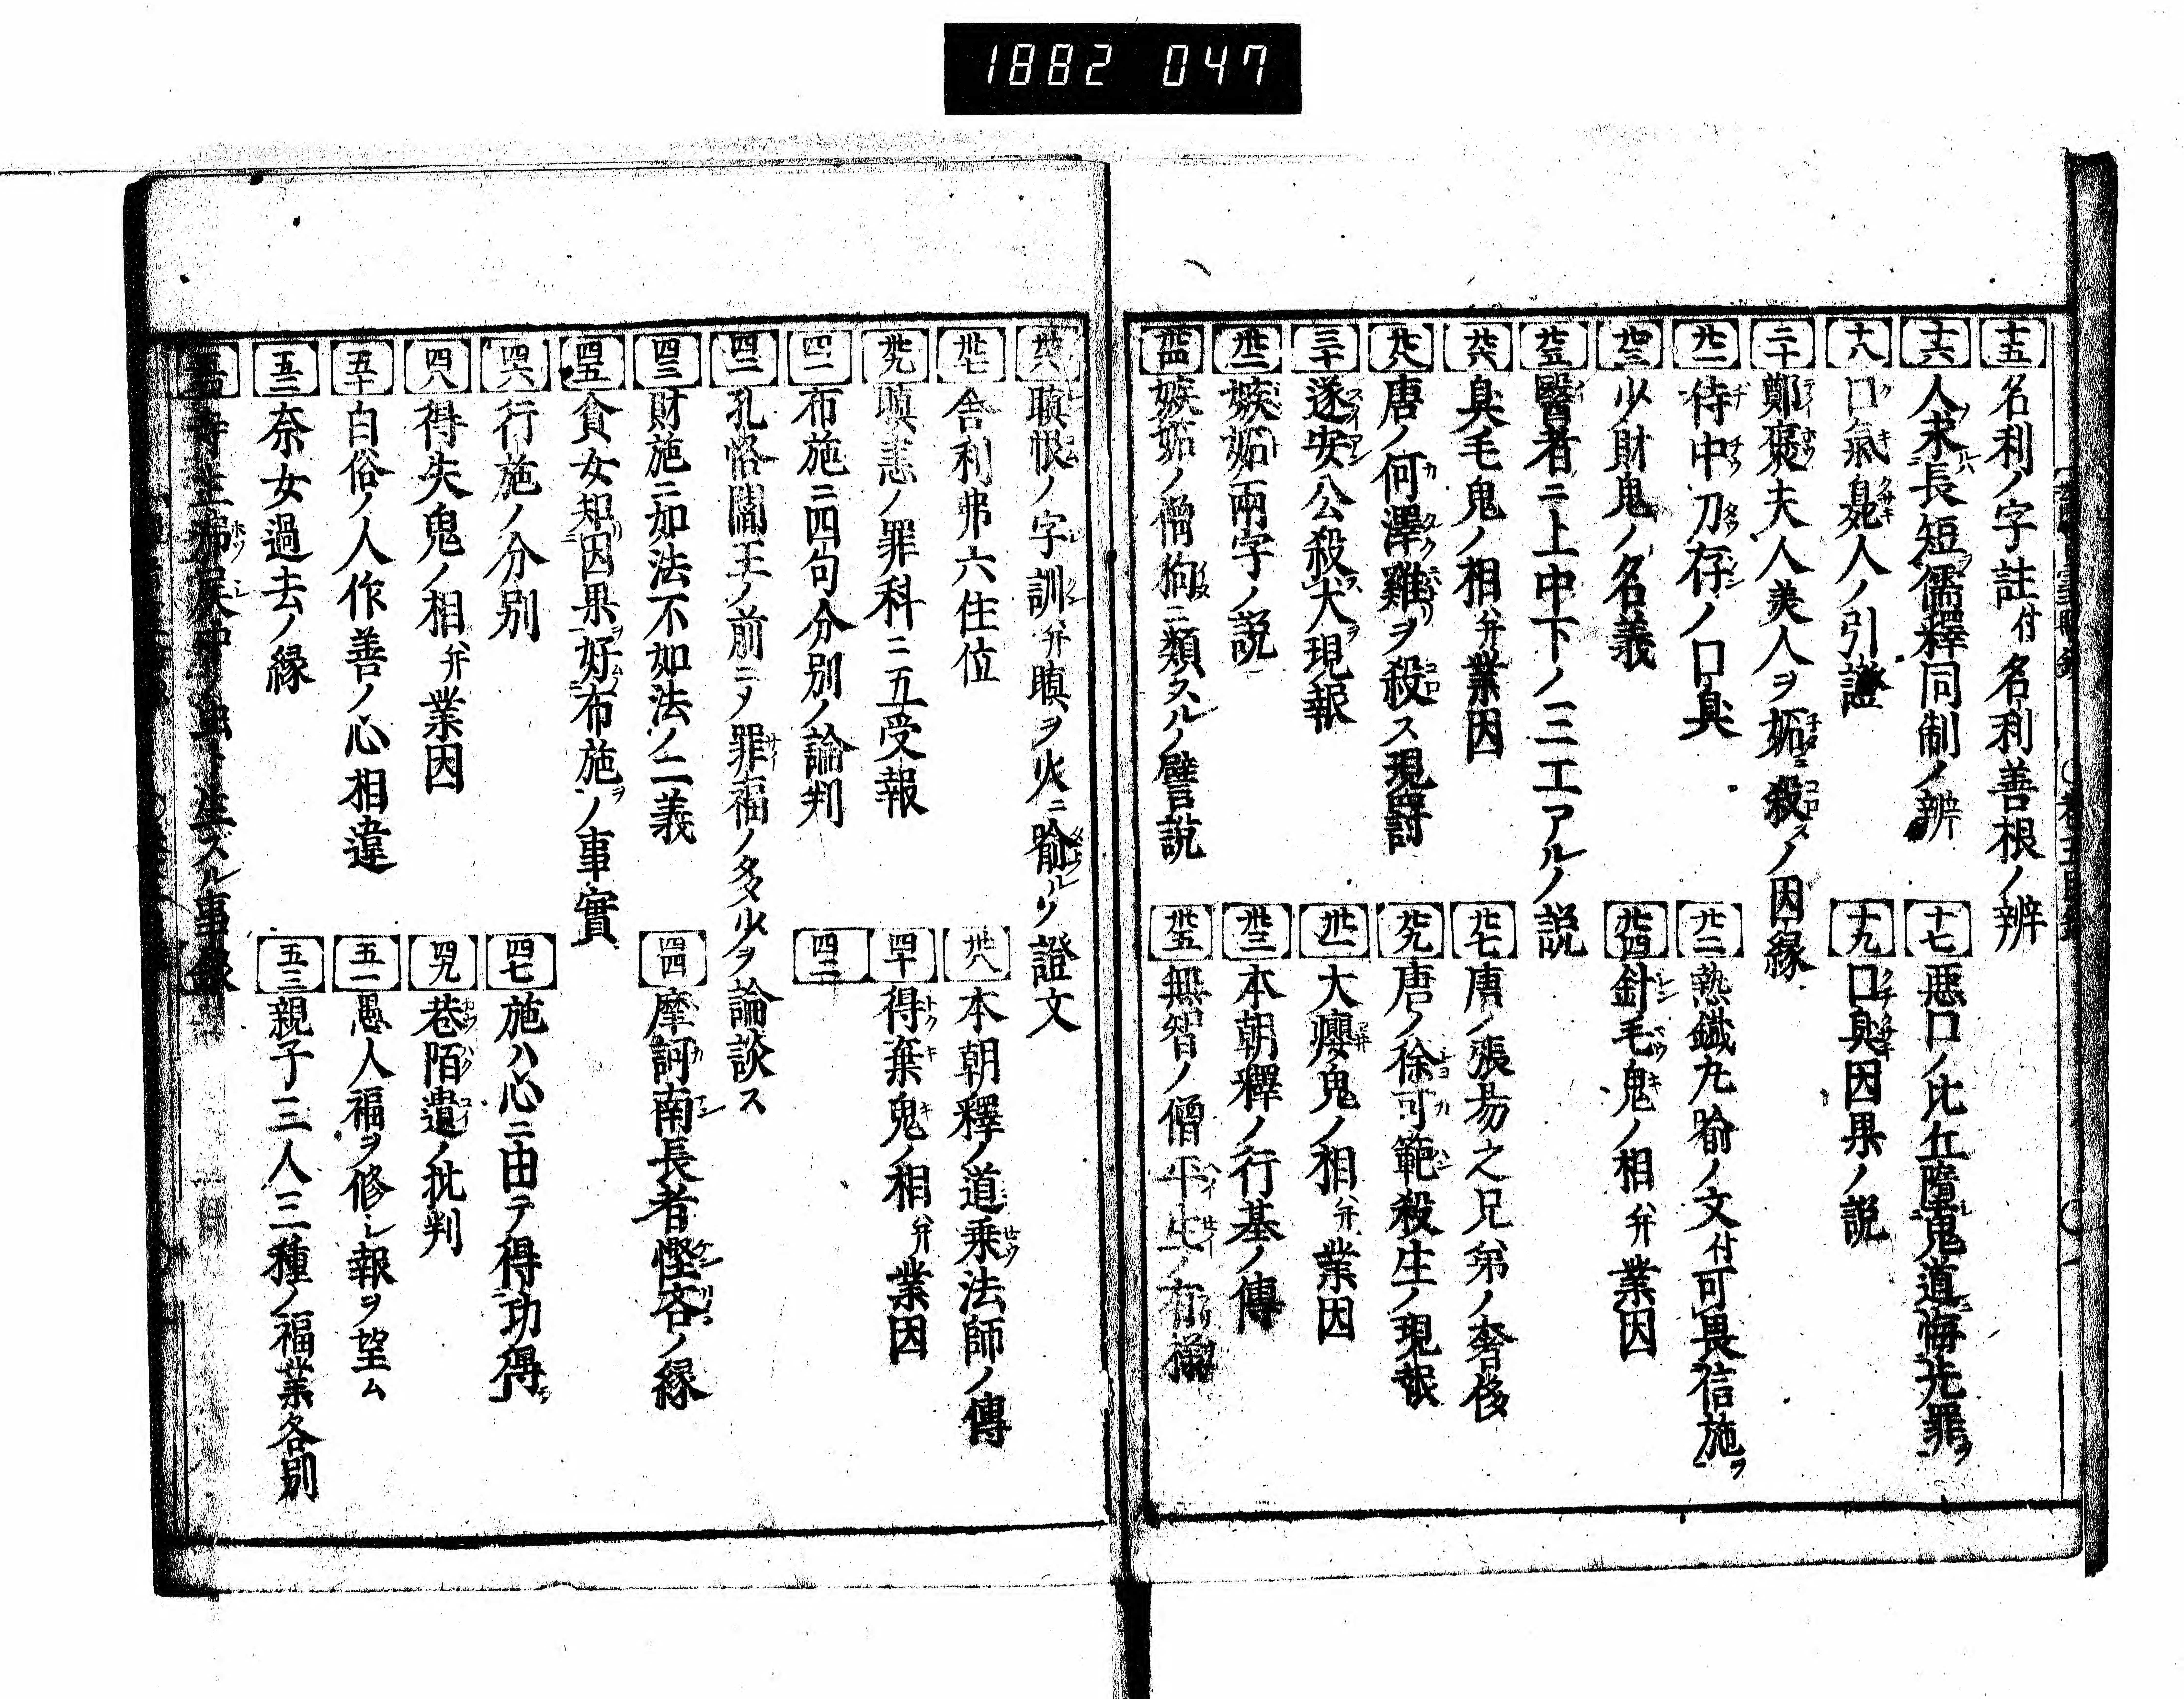 1882 047
十五 名利ノ字註付名利善根ノ辨
十六 人求長短儒釋同制ノ辨
十七 惡口ノ比丘墮鬼道悔先罪ヲ
十八 口氣臭人ノ引證
十九 口臭因果ノ説
二十 鄭褒夫人美人ヲ妬ミ殺スノ因縁
廿一 侍中刀存ノ口臭
廿二 熱鐵丸喻ノ文付可畏信施ヲ
廿三 少財鬼ノ名義
廿四 針毛鬼ノ相并業因
廿五 醫者ニ上中下ノ三工アルノ説
廿六 臭毛鬼ノ相并業因
廿七 唐ノ張易之兄弟ノ奢侈
廿八 唐ノ何澤雞ヲ殺ス現罸
廿九 唐ノ徐可範殺生ノ現報
三十 遂安公殺犬現報
卅一 大癭鬼ノ相并業因
卅二 嫉妬兩字ノ説
卅三 本朝釋ノ行基ノ傳
卅四 嫉妬ノ僧狗ニ類スルノ譬説
卅五 無智ノ僧平生ノ有樣
卅六 瞋恨ノ字訓并瞋ヲ火ニ喻ルリ證文
卅七 舎利弗六住位
卅八 本朝釋ノ道乗法師ノ傳
卅九 瞋恚ノ罪科ニ五受報
四十 得棄鬼ノ相并業因
四一 布施ニ四句分別ノ論判
四二
四二 孔恪閻王ノ前ニメ罪福ノ多少ヲ論談ス
四三 財施ニ如法不如法ノ二義
四四 摩訶南長者慳吝ノ縁
四五 貧女知因果好布施ノ事實
四六 行施ノ分別
四七 施ハ心ニ由テ得功得
四八 得失鬼ノ相并業因
四九 巷陌遺ノ批判
五十 白俗ノ人作善ノ心相違
五一 愚人福ヲ修レ報ヲ望ム
五二 奈女過去ノ縁
五三 親子三人三種ノ福業各別
五四 寺主 屎中ノ虫ト生ズル事縁